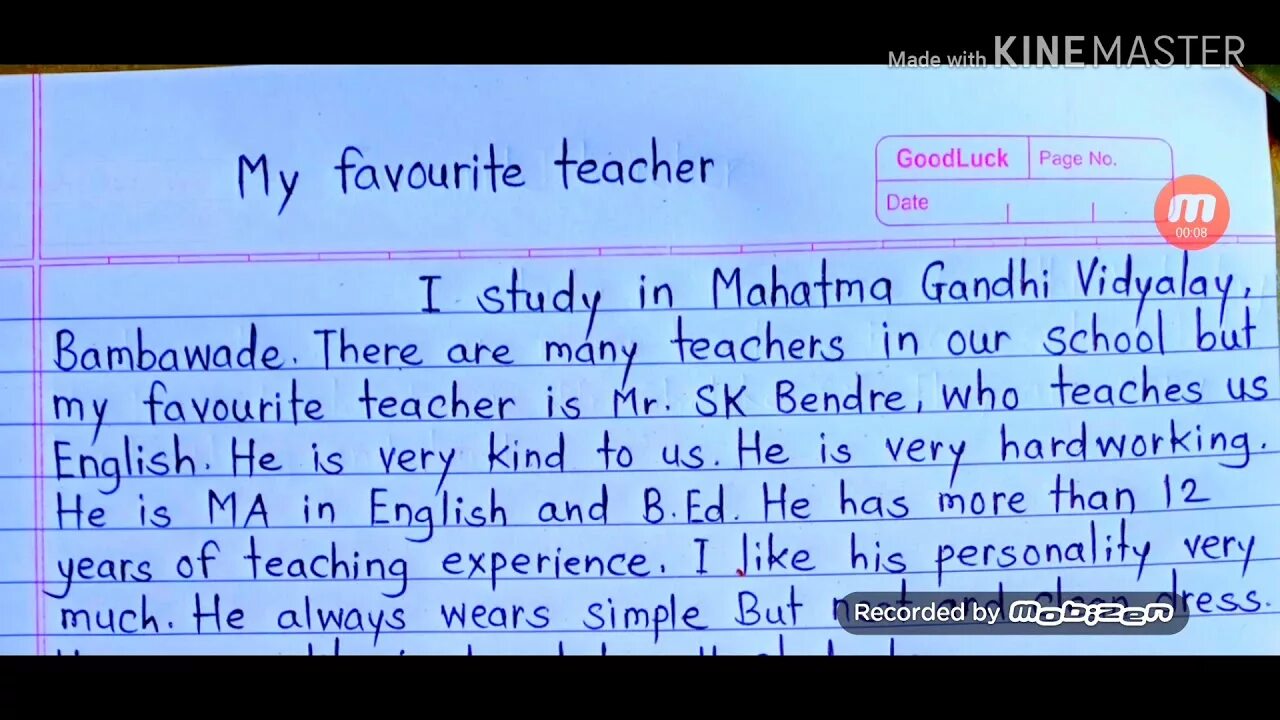 Made with KINEMASTER
My favourite teacher
GoodLuck
Page No.
Date
00:08
I study in Mahatma Gandhi Vidyalay,
Bambawade. There are many teachers in our school but
my favourite teacher is Mr. SK Bendre, who teaches us
English. He is very kind to us. He is very hardworking.
He is MA in English and B.Ed. He has more than 12
years of teaching experience. I like his personality very
much. He always wears simple But neat and clean dress.
Recorded by mobizen